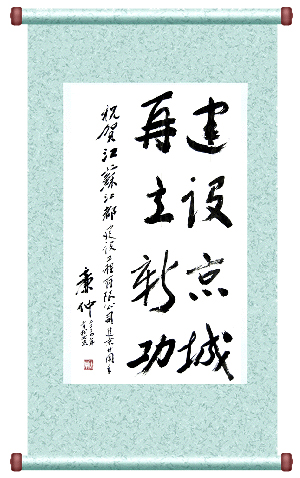 建设京城
再立新功
祝贺江苏江都建设工程有限公司进京廿周年